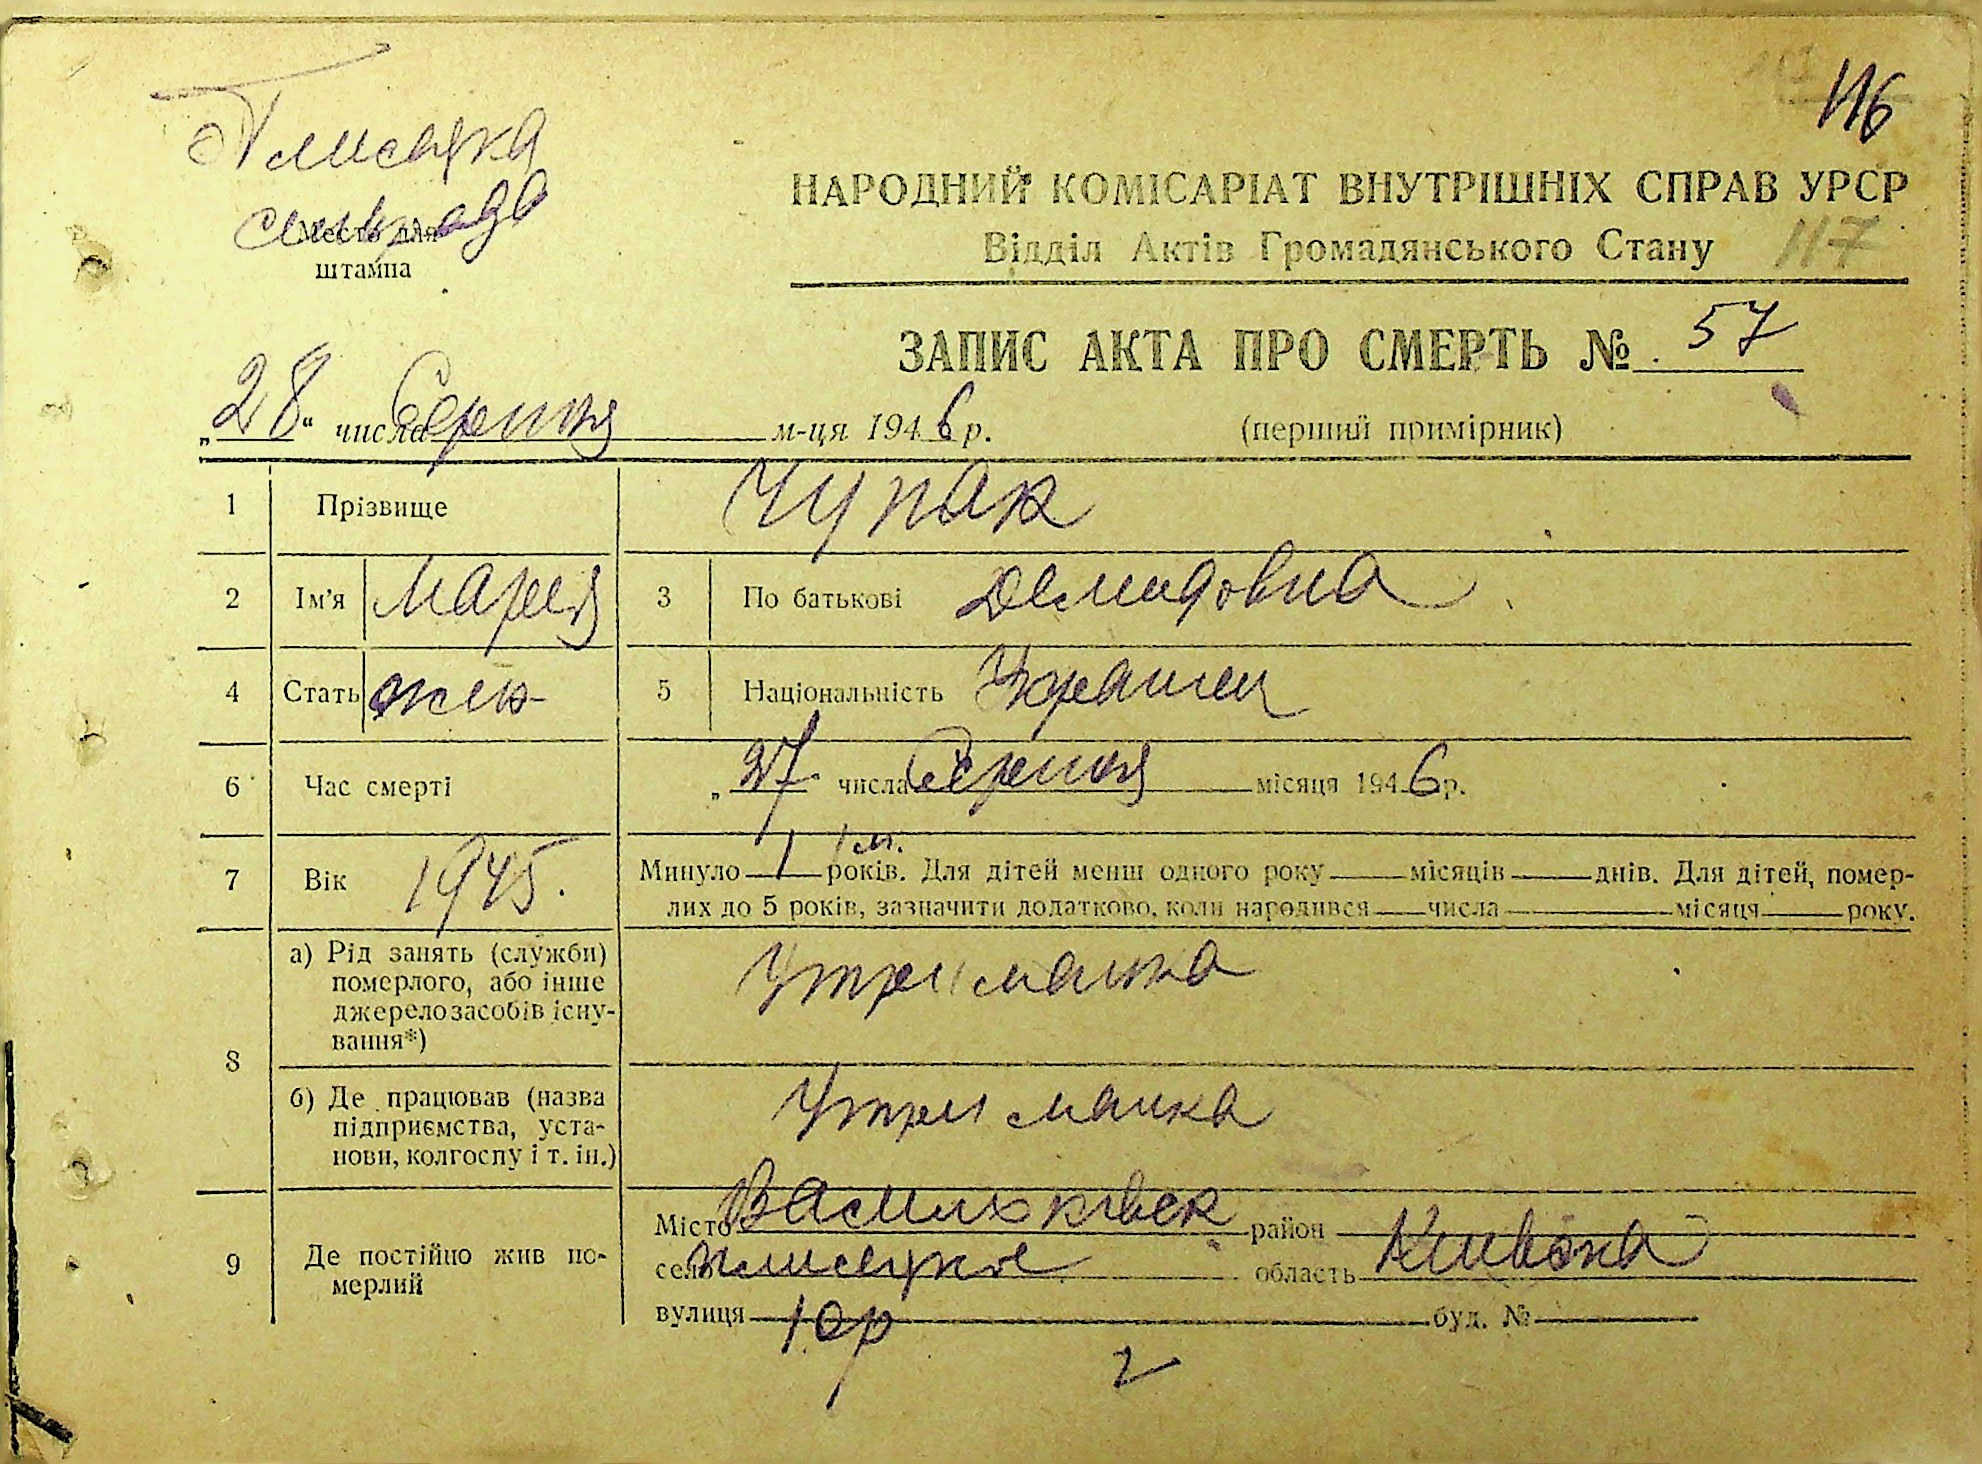 Плисецка
сільрада
Место для
штампа
116
НАРОДНИЙ КОМІСАРІАТ ВНУТРІШНІХ СПРАВ УРСР
Відділ Актів Громадянського Стану 117
ЗАПИС АКТА ПРО СМЕРТЬ № 57
„28“ числа Серпня м-ця 1946 р.
(перший примірник)
1 Прізвище Чупак
2 Ім'я Мария 3 По батькові Демидовна
4 Стать жін- 5 Національність Украин
6 Час смерті „27 числа Серпня місяця 1946 р.
7 Вік 1945. Минуло 1 років. Для дітей менш одного року місяців днів. Для дітей, помер-
1 м.
лих до 5 років, зазначити додатково, коли народився числа місяця року.
8 а) Рід занять (служби)
померлого, або інше
джерело засобів існу-
вання*)
Утриманка
б) Де працював (назва
підприємства, уста-
нови, колгоспу і т. ін.)
Утриманка
9 Де постійно жив по-
мерлий
Місто Васильківск район
село Плисецкое область Київска
вулиця 1 ор буд. №
2